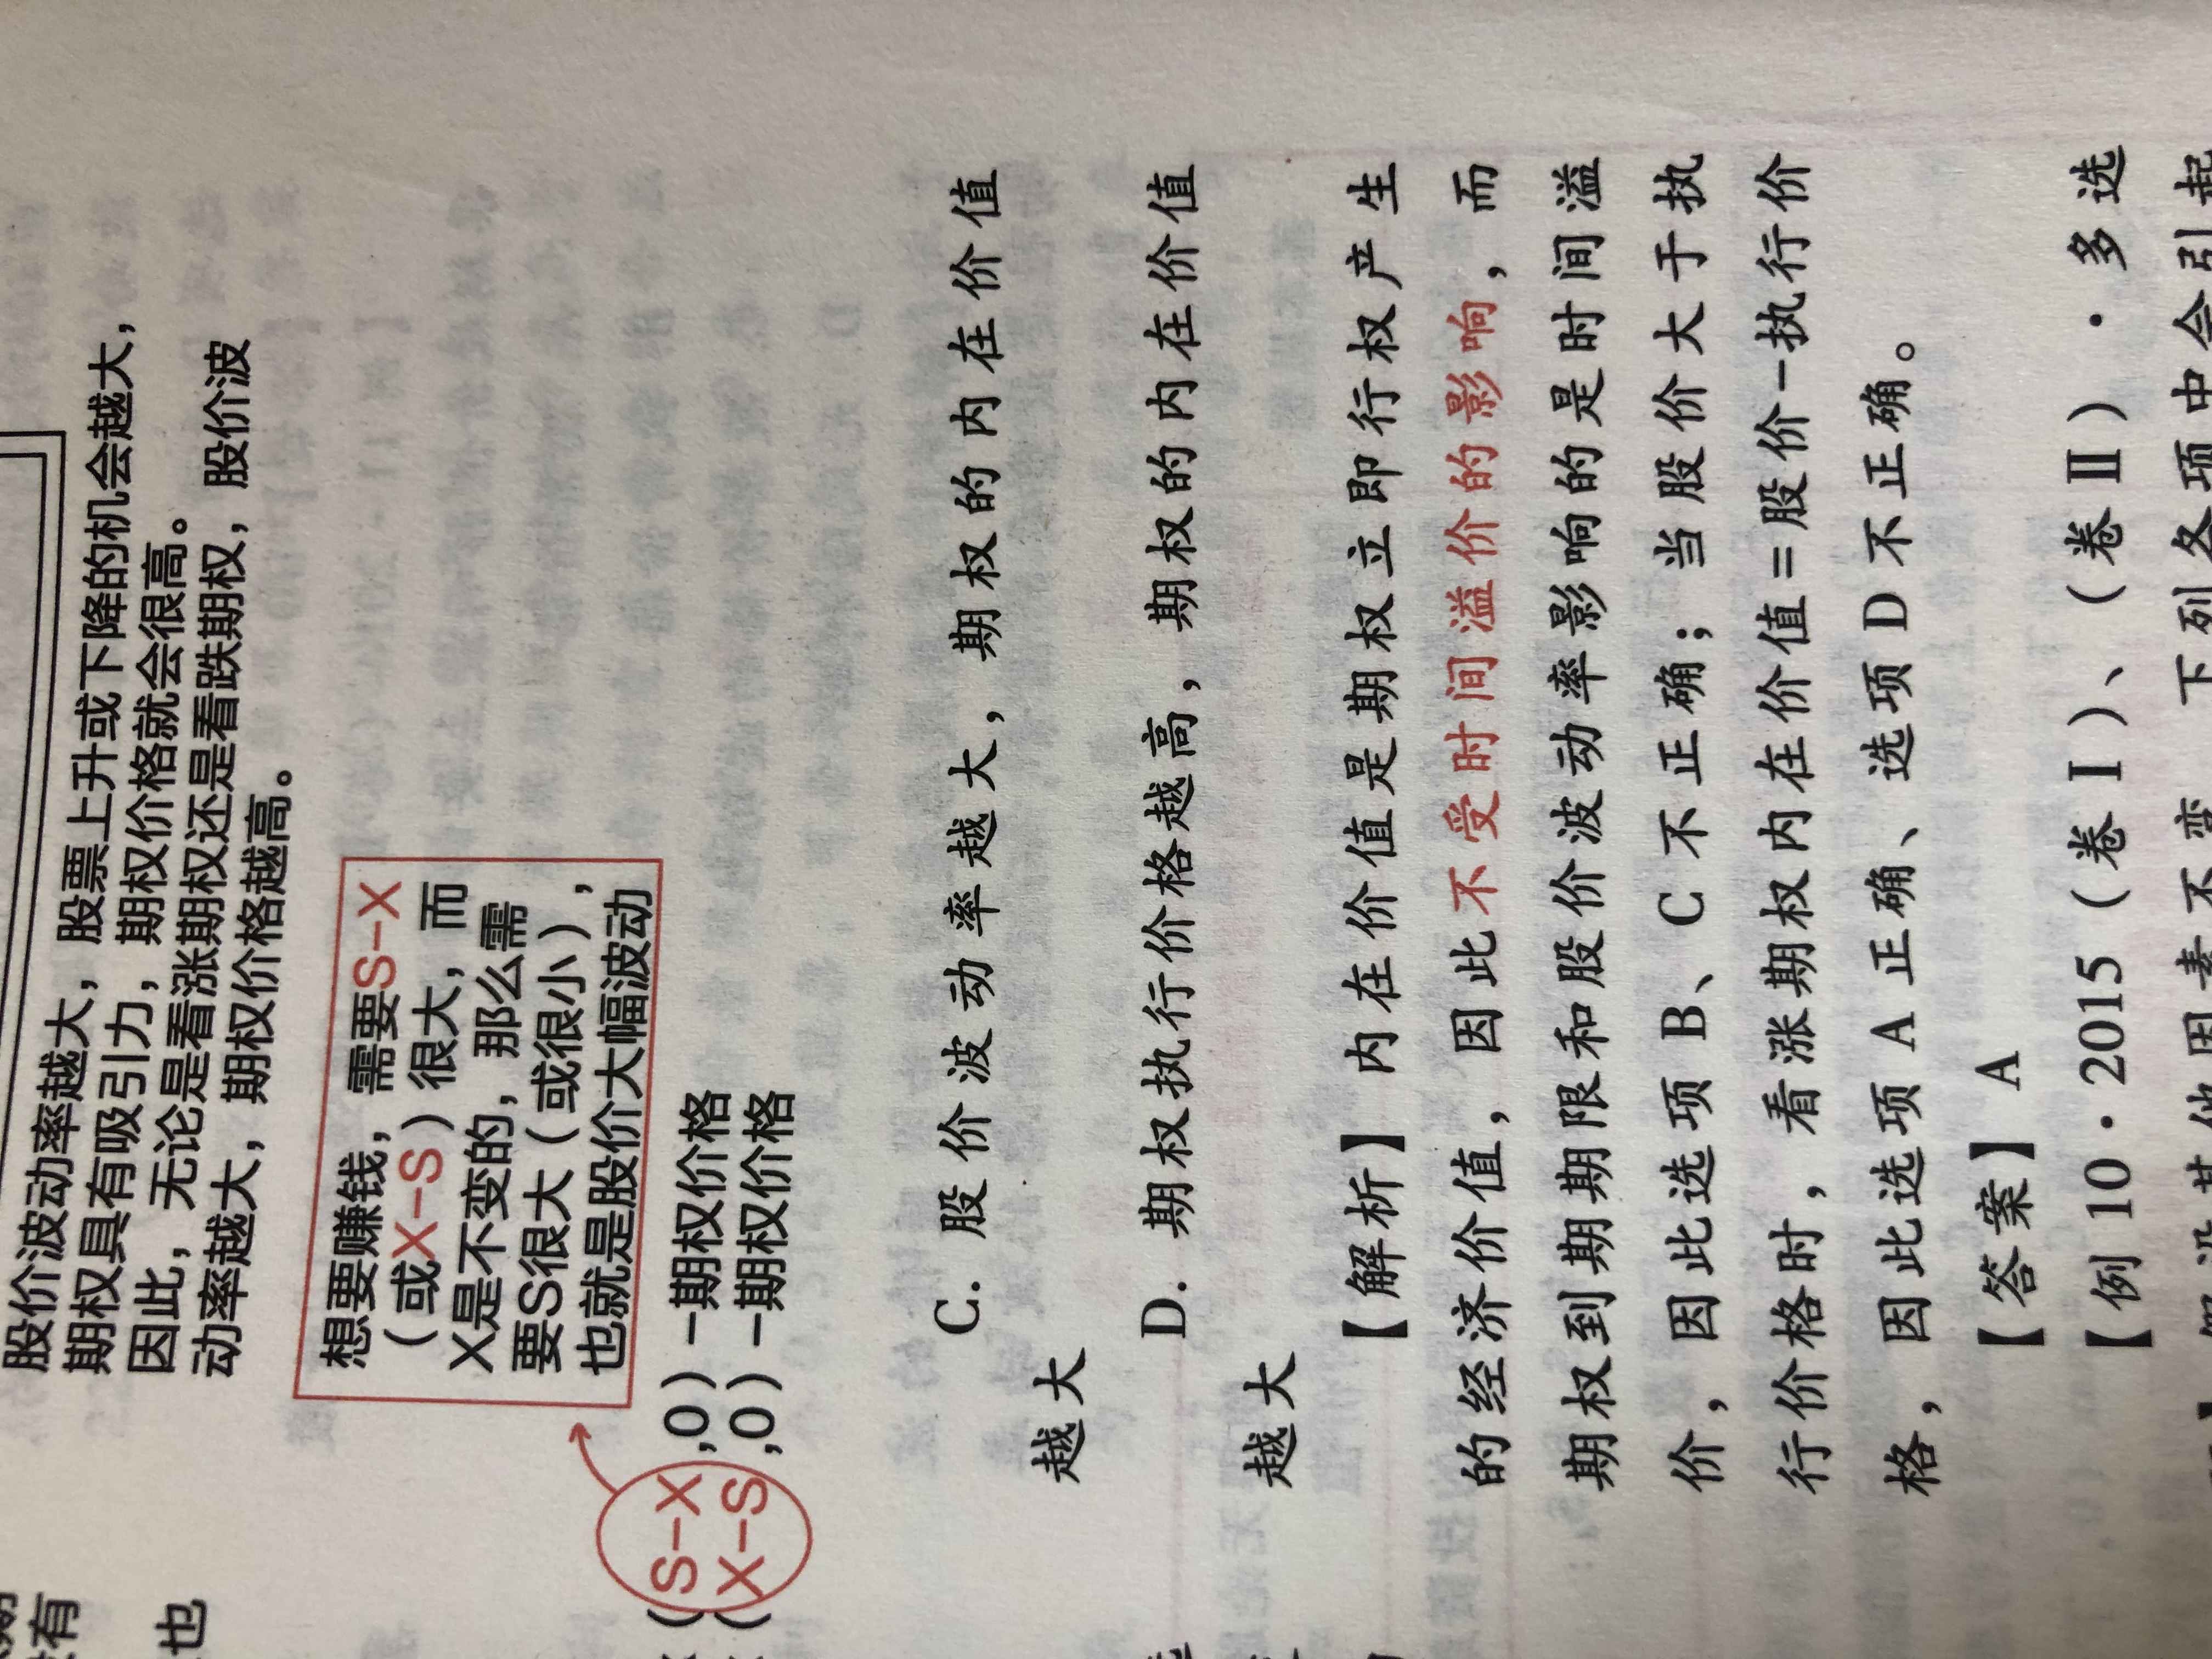 股价波动率越大，股票上升或下降的机会越大，
期权具有吸引力，期权价格就会很高。
因此，无论是看涨期权还是看跌期权，股价波
动率越大，期权价格越高。
没有
也
想要赚钱，需要S-X
（或X-S）很大，而
X是不变的，那么需
要S很大（或很小），
也就是股价大幅波动
（S-X,0）-期权价格
（X-S,0）-期权价格
C. 股价波动率越大，期权的内在价值
越大
D. 期权执行价格越高，期权的内在价值
越大
【解析】 内在价值是期权立即行权产生
的经济价值，因此不受时间溢价的影响，而
期权到期期限和股价波动率影响的是时间溢
价，因此选项 B、C 不正确；当股价大于执
行价格时，看涨期权内在价值=股价-执行价
格，因此选项 A 正确、选项 D 不正确。
【答案】 A
【例 10·2015（卷Ⅰ）、（卷Ⅱ）·多选
其他因素不变，下列各项中会引起